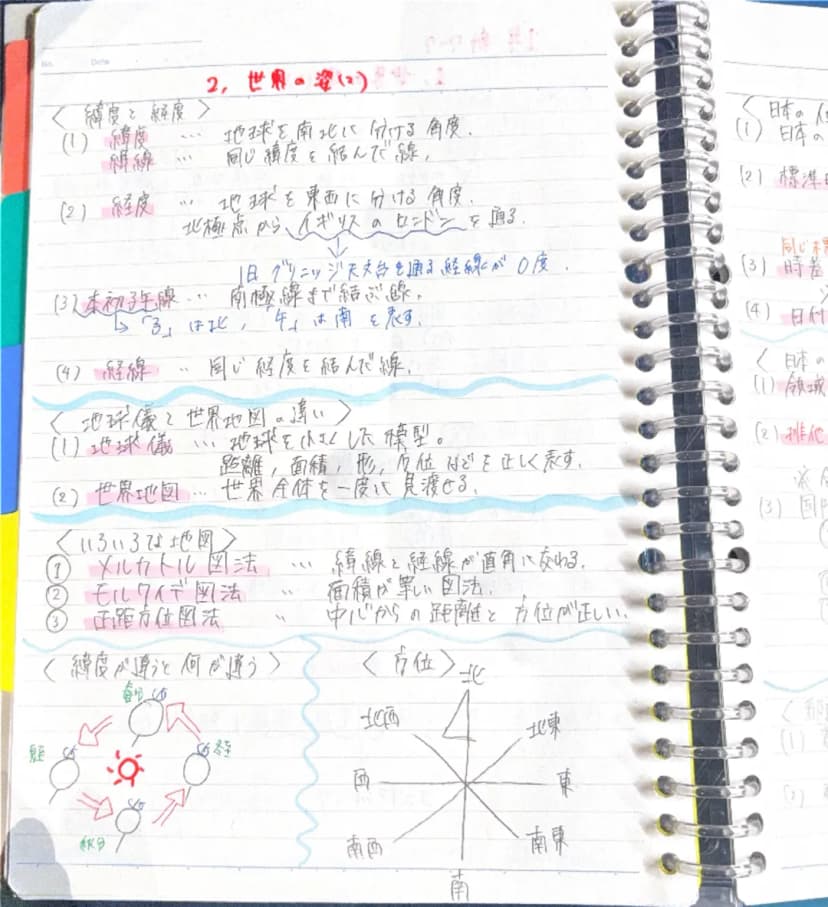 No.
Date
2, 世界の姿(2)
〈 緯度と経度 〉
(1) 緯度 … 地球を南北に分ける角度.
緯線 … 同じ緯度を結んだ線.
(2) 経度 … 地球を東西に分ける角度.
北極点からイギリスのロンドンを通る.
↓
旧グリニッジ天文台を通る経線が0度.
(3) 本初子午線 … 南極線まで結ぶ線.
↳「子」は北, 「午」は南を表す.
(4) 経線 … 同じ経度を結んだ線.
〈 地球儀と世界地図の違い 〉
(1) 地球儀 … 地球を小さくした模型。
距離, 面積, 形, 方位などを正しく表す.
(2) 世界地図 … 世界全体を一度に見渡せる.
〈 いろいろな地図 〉
① メルカトル図法 … 緯線と経線が直角に交わる.
② モルワイデ図法 〃 面積が等しい図法.
③ 正距方位図法 〃 中心からの距離と方位が正しい.
〈 緯度が違うと何が違う 〉
春分
夏至
冬至
秋分
〈 方位 〉
北
北西
北東
西
東
南西
南東
南
〈 日本の
(1) 日本の
(2) 標準
同じ
(3) 時差
(4) 日付
〈 日本の
(1) 領域
(2) 排他
(3) 国
(1)